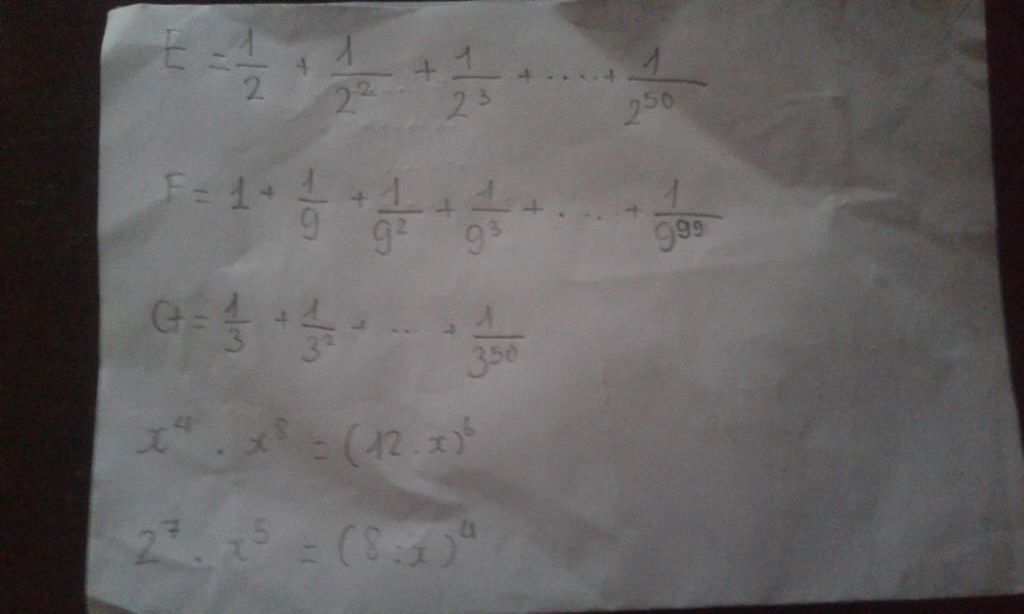 E = 1/2 + 1/2² + 1/2³ + ....+ 1/2⁵⁰
F = 1 + 1/9 + 1/9² + 1/9³ + .... + 1/9⁹⁹
G = 1/3 + 1/3² + ... + 1/3⁵⁰
x⁴ . x⁸ = (12 . x)⁶
2⁷ . x⁵ = (8 : x)⁴